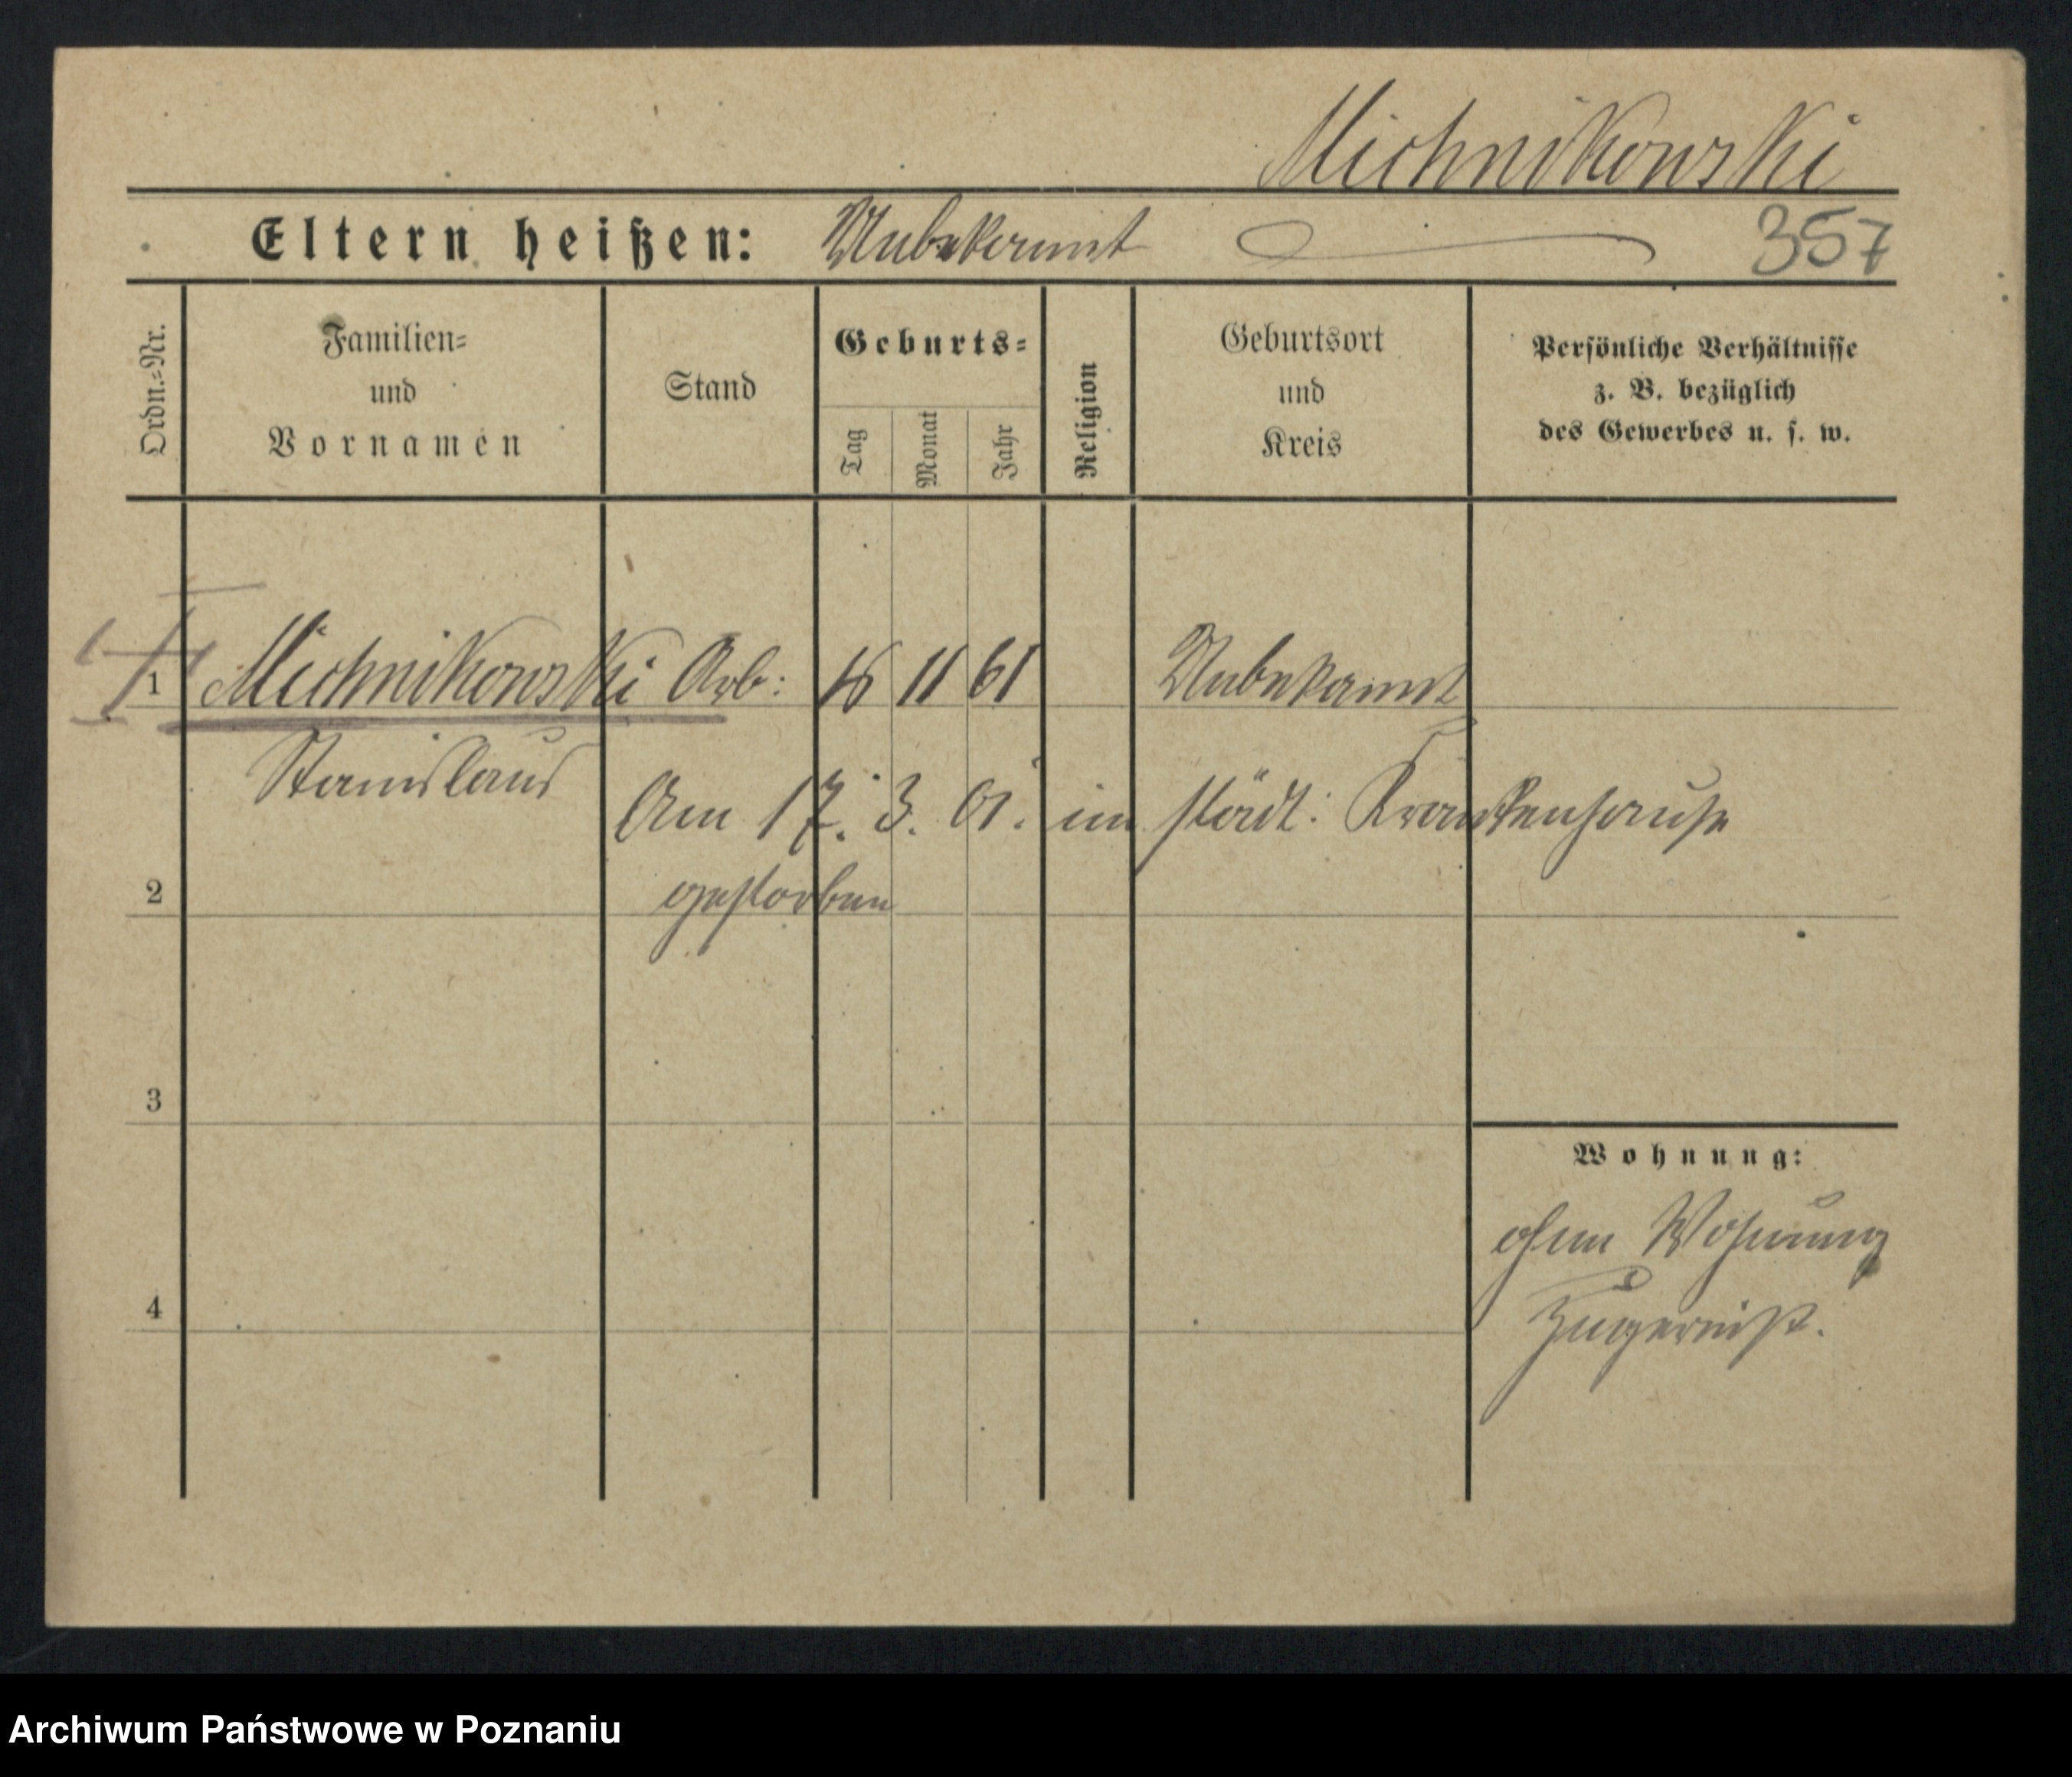 Michnikowski
Eltern heißen: Unbekannt 357
Ordn.-Nr.
Familien-
und
Vornamen
Stand
Geburts-
Tag
Monat
Jahr
Religion
Geburtsort
und
Kreis
Persönliche Verhältnisse
z. B. bezüglich
des Gewerbes u. s. w.
1 Michnikowski Arb: 11 61 Unbekannt
Stanislaus
Am 17. 3. 01. im städt: Krankenhause
2 gestorben
3
Wohnung:
ohne Wohnung
4
Archiwum Państwowe w Poznaniu